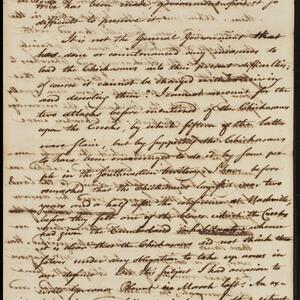 has been made
difficult to preserve it
It is not the General Government that
had done or countenanced the Chickasaws to
lead the Chickasaws into their present difficulties,
of course it cannot be charged with
and deserting them I cannot account for the
two attacks before mentioned of the Chickasaws
upon the Creeks, by which fifteen of the latter
were slain, but by supposing the Chickasaws
to have been encouraged to do it, by some peo-
ple in the territory; I have before
remarked that the Chickasaws two
years and a half after the conference at Nashville,
before they felt one of the blows which the Creeks
had given the Cumberland whence
it is clear that the Chickasaws did not think them
selves under any obligation to take up arms in
our defence. On this subject I had occasion to
write Governor Blount in March last: An ex-